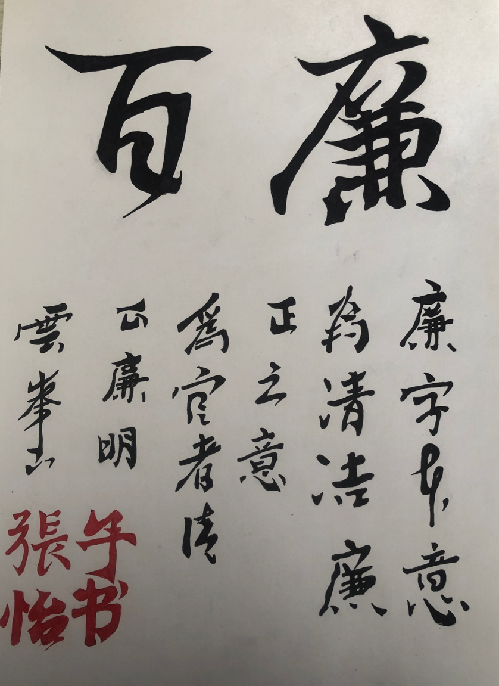 廉百
廉字本意
為清洁廉
正之意
為官者清
正廉明
雲峯山
張怡
手书